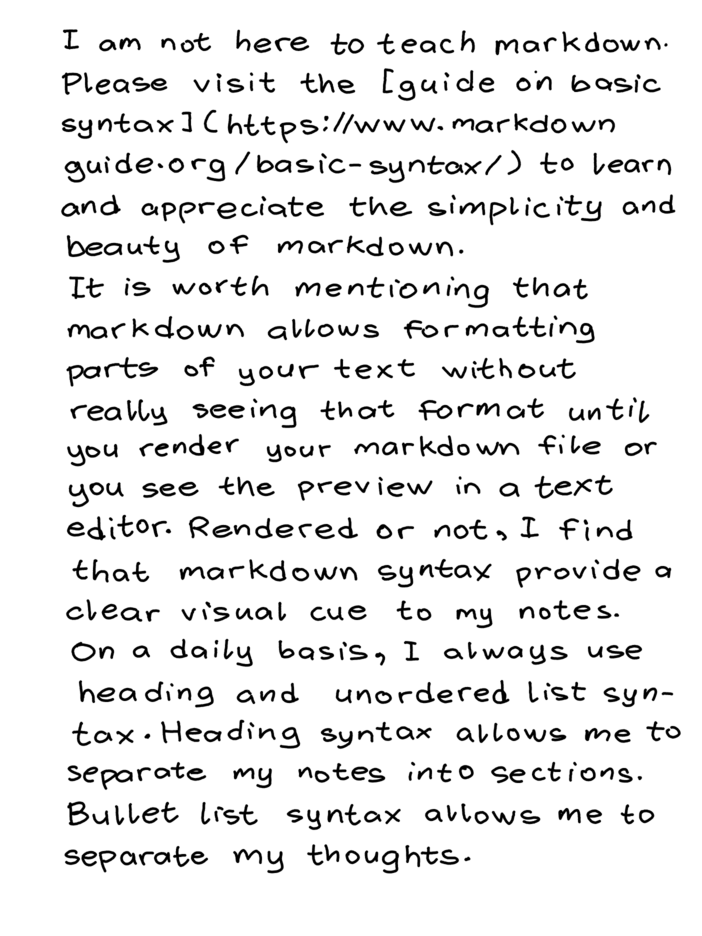 I am not here to teach markdown.
Please visit the [guide on basic
syntax](https://www.markdown
guide.org/basic-syntax/) to learn
and appreciate the simplicity and
beauty of markdown.
It is worth mentioning that
markdown allows formatting
parts of your text without
really seeing that format until
you render your markdown file or
you see the preview in a text
editor. Rendered or not, I find
that markdown syntax provide a
clear visual cue to my notes.
On a daily basis, I always use
heading and unordered list syn-
tax. Heading syntax allows me to
separate my notes into sections.
Bullet list syntax allows me to
separate my thoughts.